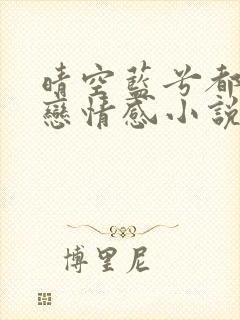 晴空藍兮都
戀情感小說
博里尼